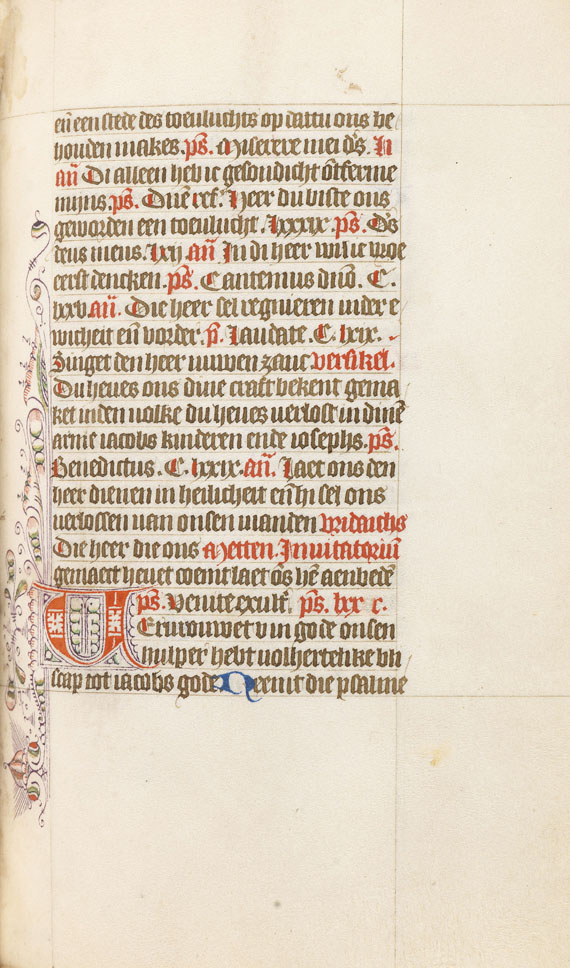 eñ een stede des toeuluchts op dattu ons be
houden makes. ps. Miserere mei d̄s. In
añ Di alleen heb ic gesondicht ōtferme
mijns. ps. Dñe ref. Heer du biste ons
geworden een toeulucht. lxxxix. ps. D̄s
deus meus. lxij añ In di heer wil ic vroe
eerst dencken. ps. Cantemus dnō. C.
lxxv. añ. Die heer sel regnieren inder e
wicheit eñ vorder. p̄. Laudate. C. lxix.
Zinget den heer nuwen zanc versikel.
Du heues ons dine craft bekent gema
ket inden uolke du heues uerlost in dinē
arme iacobs kinderen ende iosephs. ps.
Benedictus. C. lxxix. añ. Laet ons den
heer dienen in heilicheit eñ hi sel ons
uerlossen uan onsen uianden vridaichs
Die heer die ons Metten. Inuitatoriū
gemaect heuet coemt laet ōs hē aenbedē
ps. Venite exult. ps. lxx c.
Ervrouwet v in gode onsen
hulper hebt uolhertelike bli
scap tot iacobs gode Neemt die psalme